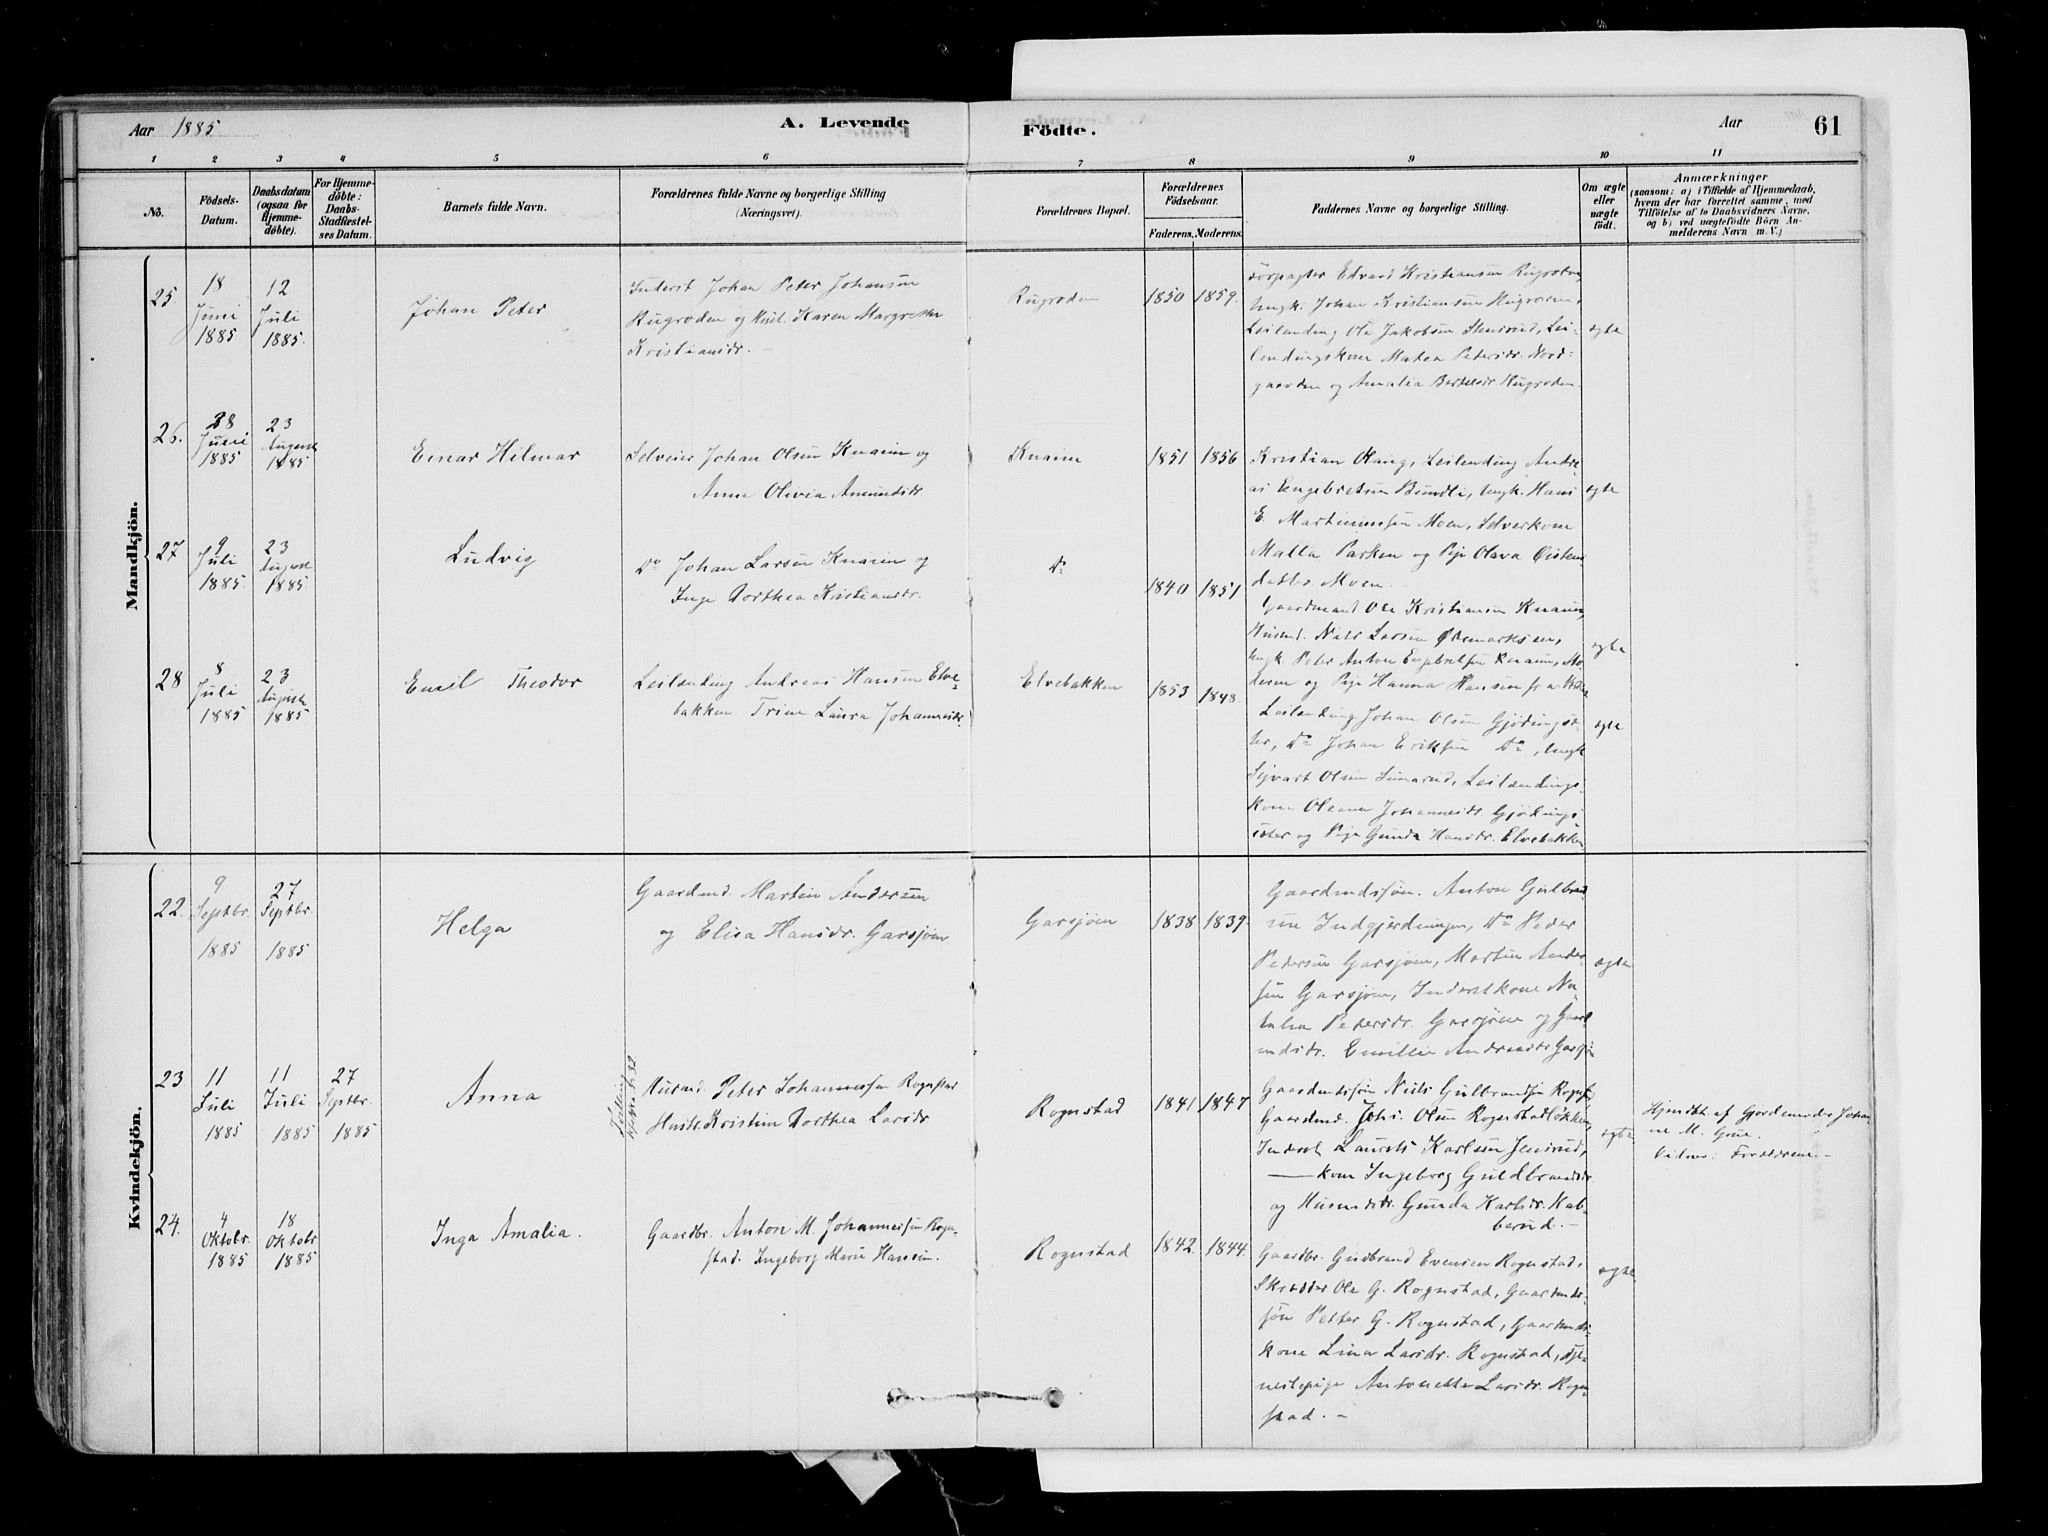 Aar 1885
A. Levende
Födte.
Aar
61
1 2 3 4 5 6 7 8 9 10 11
No.
Födsels-
Datum.
Daabsdatum
(ogsaa for
Hjemme-
döbte).
For Hjemme-
döbte:
Daabs-
Stadfæstel-
ses Datum.
Barnets fulde Navn.
Forældrenes fulde Navne og borgerlige Stilling
(Næringsvei).
Forældrenes Bopæl.
Forældrenes
Födselsaar.
Faderens. Moderens.
Faddernes Navne og borgerlige Stilling.
Om ægte
eller
uægte
födt.
Anmærkninger
(saasom: a) i Tilfælde af Hjemmedaab,
hvem der har forrettet samme, med
Tilföielse af to Daabsvidners Navne,
og b) ved uægtefödte Börn An-
melderens Navn m. V.)
Mandkjön.
25
18
Juni
1885
12
Juli
1885.
Johan Peter
Inderst Johan Peter Johansen
Rugroden og Karen Margrethe
Kristiansdr. -
Rugroden
1850 1859.
Edvard Kristiansen
Ungk. Johan Kristiansen Rugroden,
Leilending Ole Jakobsen Lei-
lendingskone Matea Petersdr. Nord-
gaarden og Amalia Bertelsdr. Rugroden
ægte
26.
28
1885
23
August
1885
Einar Hilmar
Selveier Johan Olsen Knaim og
Anne Olivia Amundsdr
Knaim
1851 1856
Kristian Olaug, Leilending Andre-
as Engebretsen Bundli, Ungk. Hans
E. Martiniussen Moen, Selveierkone
Malla Parken og Pige Olava
datter Moen. -
ægte
27
9
Juli
1885.
23
August
1885
Ludvig
Do Johan Larsen Knaim og
Inge Dorthea Kristiansdr.
Do
1840 1851
Gaardmand Ole Kristiansen Knaim,
Husmd. Nils Larsen
Ungk. Peter Anton Engebretsen Knaim,
og Pige Hanna Hansen
ægte
28
8
Juli
1885
23
August
1885
Emil Theodor
Leilending Andreas Hansen Elve-
bakken. Trine Laura Johannesdr.
Elvebakken
1853 1848.
Leilending Johan Olsen
Do Johan Eriksen Do, Ungk
Sigvart Olsen Leilendings-
kone Oleana Johannesdr.
og Pige Gunda Hansdr. Elvebakken
ægte
Kvindekjön.
22.
9
Septbr.
1885
27
Septbr.
1885
Helga
Gaardmd. Martin Andersen
og Elisa Hansdr. Garsjøen.
Garsjøen
1838 1839.
Gaardmdssøn. Anton Gulbrand-
sen Indgjerdingen, Do Peder
Pedersen Garsjøen, Martin Ander-
sen Garsjøen, Inderstkone Na-
talia Pedersdr. Garsjøen og Gaard-
mdsdr. Emilie Garsjøen
ægte
23
11
Juli
1885
11
Juli
1885
27
Septbr.
1885
Anna
Husmd. Peter Johannessen Rognstad
Hustr. Kristine Dorthea Larsdr
Rognstad
1841 1847
Gaardmdssøn Niels Gulbrandsen
Gaardmd. Johs. Olsen Rognstadløkken,
Inderst Laurits Karlsen
— kone Ingeborg Guldbrandsdr
og Husmdsdr. Gunda Karlsdr. Hab-
berud. -
ægte
Hjemdbt af Gjordemoder Johan-
ne M. Grue.
Vidner: Forældrene. -
24.
4
Oktobr.
1885
18
Oktobr
1885
Inga Amalia.
Gaardbr. Anton M. Johannessen Rogn-
stad. Ingeborg Marie Hansen.
Rognstad
1842. 1844.
Gaardbr. Gudbrand Evensen Rognstad,
Skrædder Ole G. Rognstad, Gaardmds-
søn Petter G. Rognstad, Gaardmds-
kone Lina Larsdr. Rognstad, Tje-
nestepige Antonette Larsdr. Rogn-
stad. -
ægte